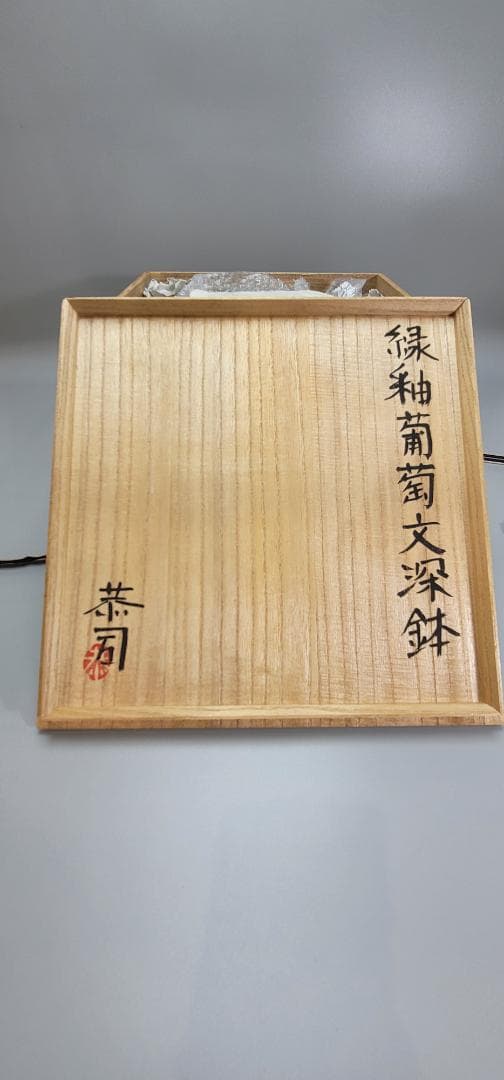 緑釉葡萄文深鉢
恭司